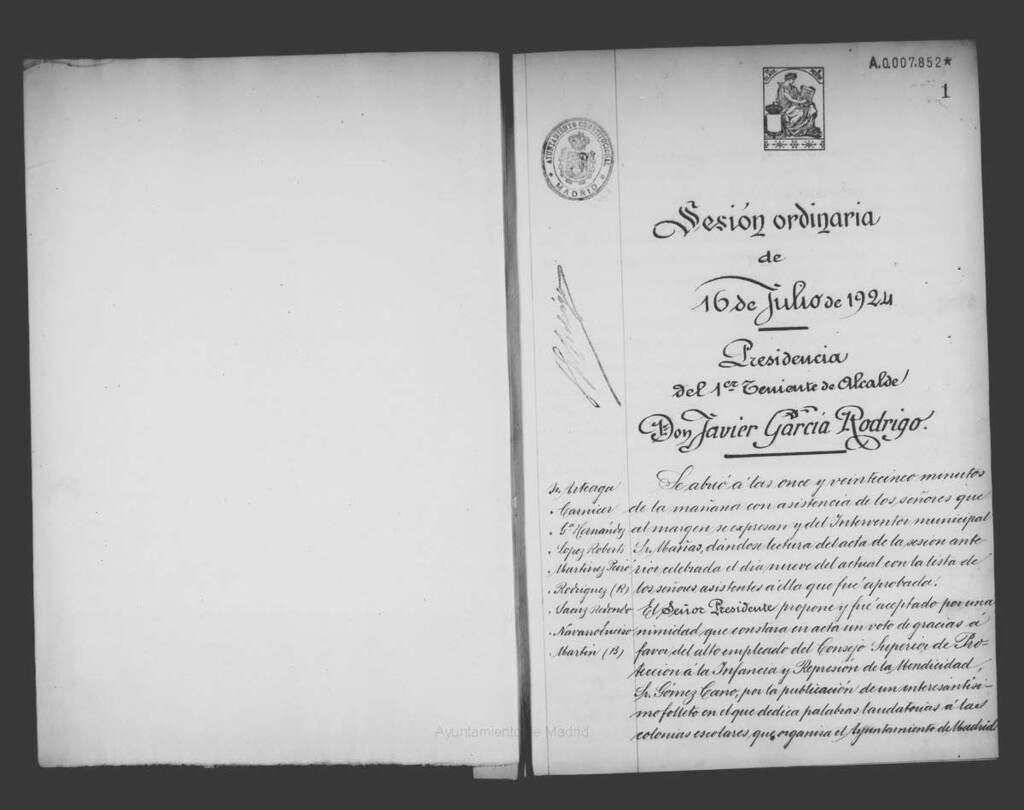 A.0.007.852*
1
AYUNTAMIENTO CONSTITUCIONAL
MADRID
Sesión ordinaria
de
16 de Julio de 1924
Presidencia
del 1er Teniente de Alcalde
Don Javier García Rodrigo.
Sr. Arteaga
Carnicer
Ga Hernández
López Roberts
Martínez Peiró
Rodríguez (R)
Saenz Redondo
Martín (B)
Se abrió á las once y veinticinco minutos
de la mañana con asistencia de los señores que
al margen se expresan y del Interventor municipal
Sr. Mañas, dándose lectura del acta de la sesión ante-
rior celebrada el día nueve del actual con la lista de
los señores asistentes á ella que fué aprobada.
El Señor Presidente propone y fué aceptado por una
nimidad, que constara en acta un voto de gracias á
favor del alto empleado del Consejo Superior de Pro-
tección á la Infancia y Represión de la Mendicidad,
Sr. Gómez Cano, por la publicación de un interesantísi-
mo folleto en el que dedica palabras laudatorias á las
colonias escolares, que organiza el Ayuntamiento de Madrid.
Ayuntamiento de Madrid